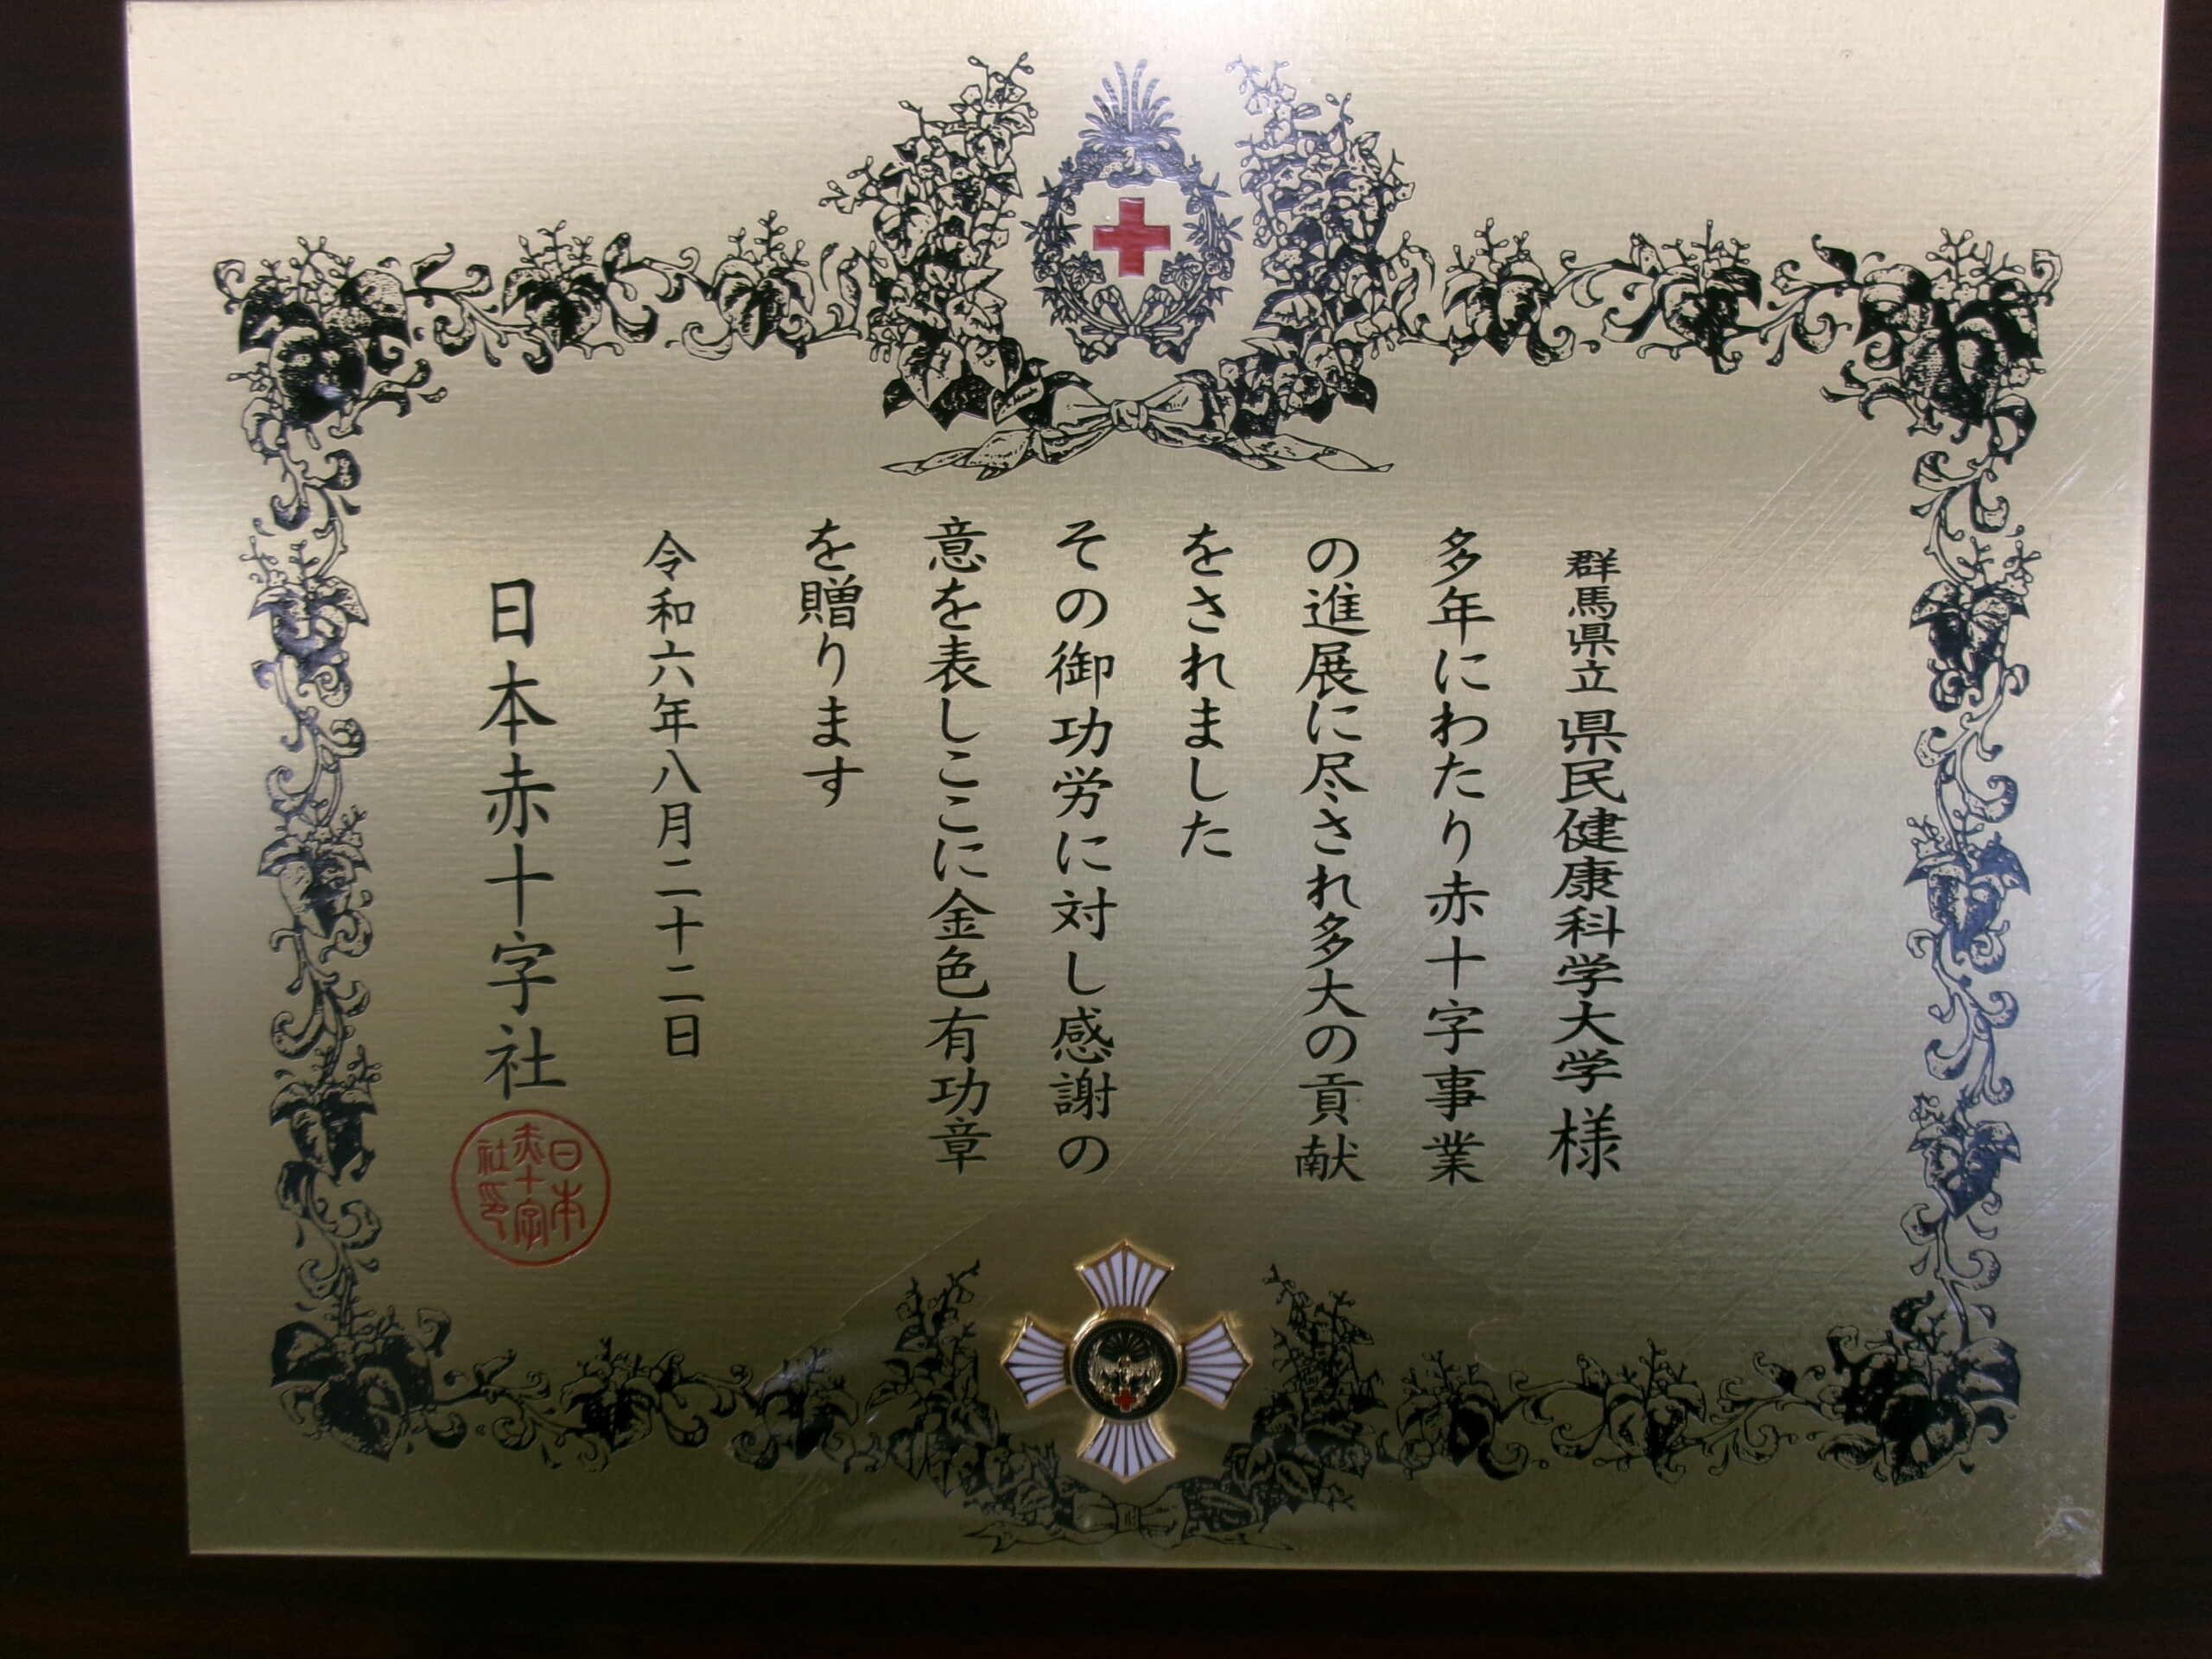 群馬県立 県民健康科学大学 様
多年にわたり赤十字事業
の進展に尽され多大の貢献
をされました
その御功労に対し感謝の
意を表しここに金色有功章
を贈ります
令和六年八月二十二日
日本赤十字社
日本
赤十字
社印